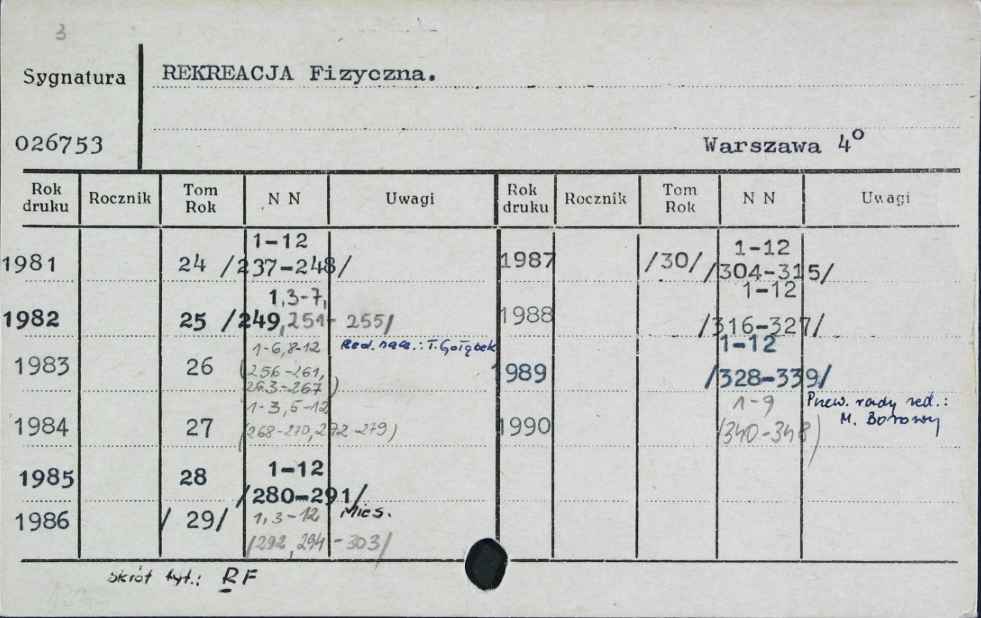 3
Sygnatura
REKREACJA Fizyczna.
026753
Warszawa 4°
Rok druku Rocznik Tom Rok N N Uwagi Rok druku Rocznik Tom Rok N N Uwagi
1981 24 1-12 /237-248/
1982 25 1,3-7, /249,251-255/
Red. nacz.: T. Gołąbek
1983 26 1-6,8-12 (256-261, 263-267)
1984 27 1-3,5-12 (268-270,272-279)
1985 28 1-12 /280-291/
Mies.
1986 /29/ 1,3-12 /292,294-303/
1987 /30/ 1-12 /304-315/
1988 1-12 /316-327/
1989 1-12 /328-339/
1990 1-9 (340-348)
Przew. rady red.:
M. Borowy
skrót tyt.: RF